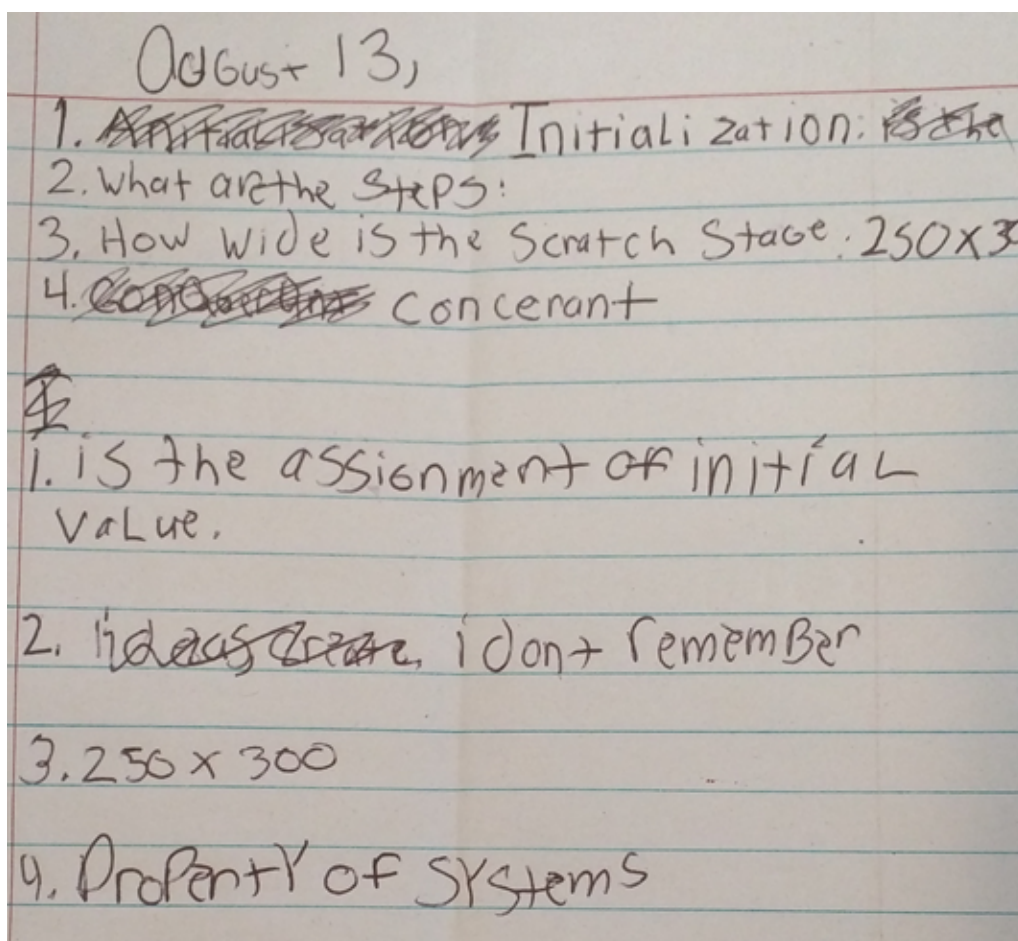 August 13,
1. Initialization:
2. What are the Steps:
3. How wide is the Scratch Stage. 250x30
4. concerant
1. is the assignment of initial
value.
2. i dont remember
3. 250 x 300
4. Property of systems